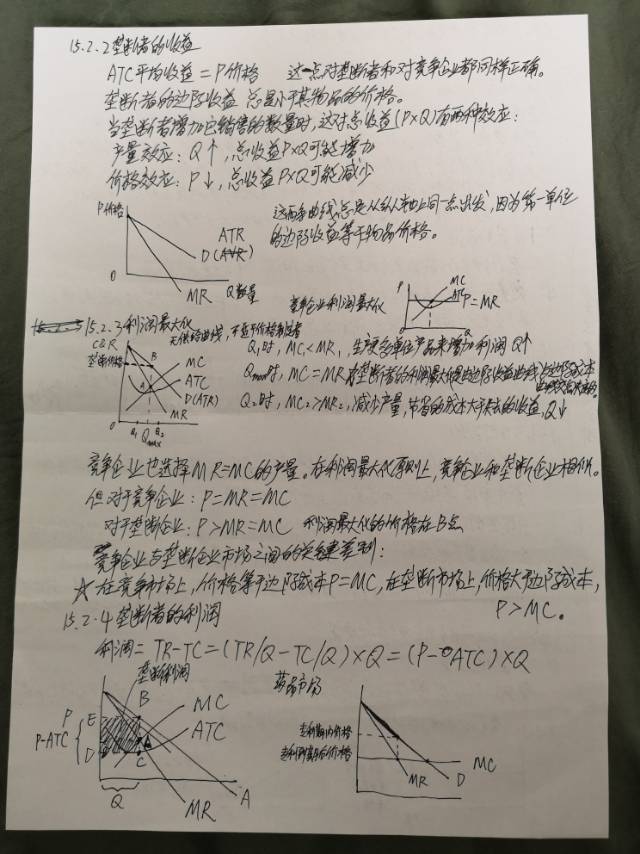 15.2.2垄断者的收益
ATC平均收益=P价格 这一点对垄断者和对竞争企业都同样正确。
垄断者的边际收益 总是小于其物品的价格。
当垄断者增加它销售的数量时,这对总收益(P×Q)有两种效应:
产量效应:Q↑,总收益P×Q可能增加
价格效应:P↓,总收益P×Q可能减少
这两条曲线总是从纵轴上同一点出发,因为第一单位
的边际收益等于物品价格。
P价格
ATR
D(AVR)
0
MR
Q数量
竞争企业利润最大化
P
MC
ATC
P=MR
Q
15.2.3利润最大化
无供给曲线,
C&R
垄断价格
B
MC
A
ATC
D(ATR)
MR
0
Q₁
Qmax
Q₂
Q₁时,MC₁<MR₁,生产更多单位产品来增加利润 Q↑
Qmax时,MC=MR,垄断者的利润最大化是边际收益曲线与边际成本
Q₂时,MC₂>MR₂,减少产量,节省的成本大于失去的收益,Q↓
竞争企业也选择MR=MC的产量。在利润最大化原则上,竞争企业和垄断企业相似。
但对于竞争企业:P=MR=MC
对于垄断企业:P>MR=MC 利润最大化的价格在B点
竞争企业与垄断企业市场之间的关键差别:
☆在竞争市场上,价格等于边际成本P=MC,在垄断市场上,价格大于边际成本,
P>MC。
15.2.4垄断者的利润
利润=TR-TC=(TR/Q-TC/Q)×Q=(P-ATC)×Q
垄断利润
P
E
B
MC
P-ATC
ATC
D
C
Q
MR
A
药品市场
专利期内价格
专利到期后价格
MC
MR
D